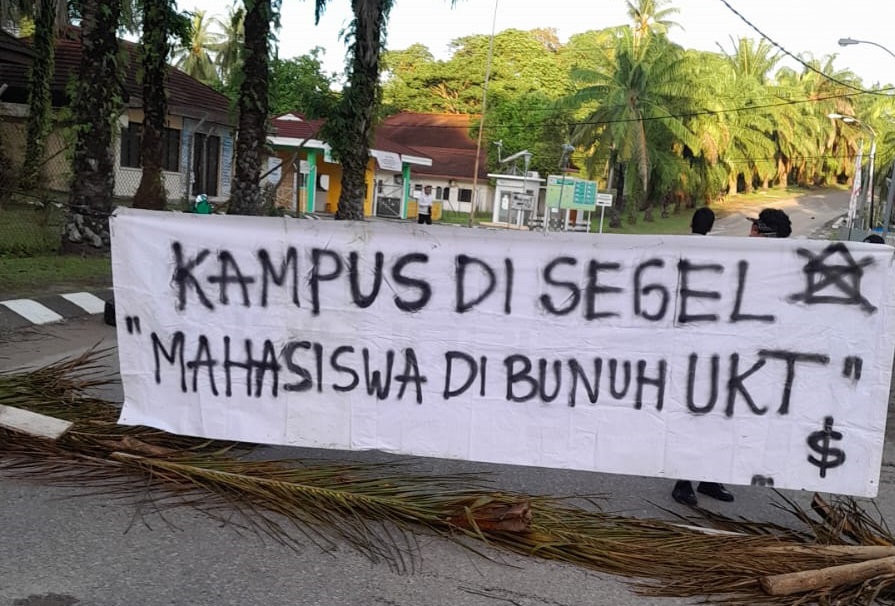 KAMPUS DI SEGEL
"MAHASISWA DI BUNUH UKT"
$